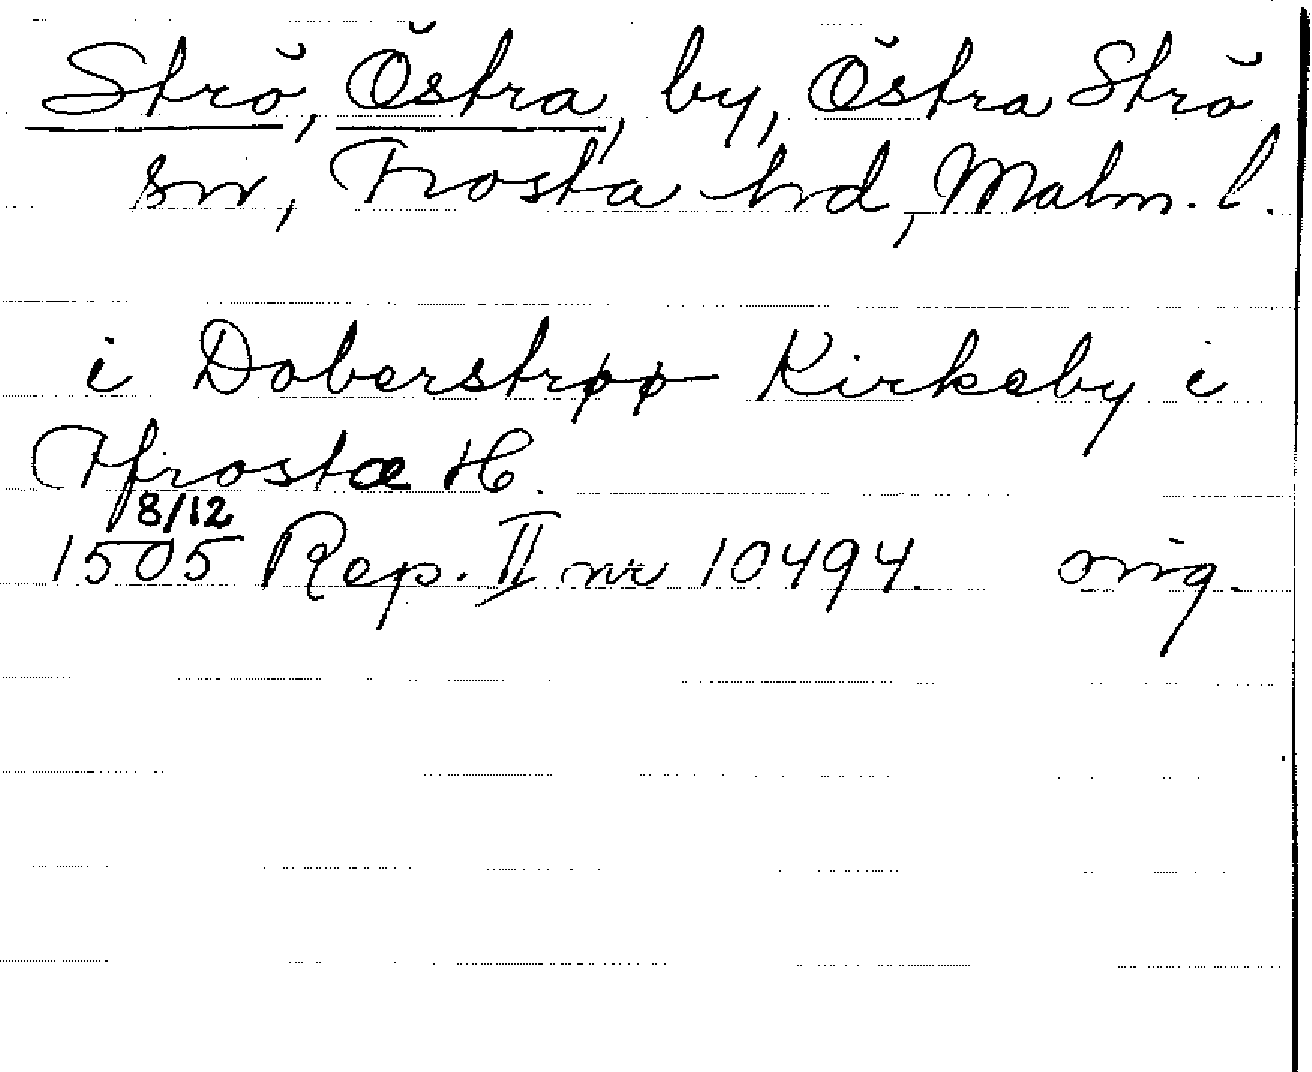 Strö, Östra, by, Östra Strö
sn, Frosta hd, Malm. l.
i Doberstrøø Kirkeby i
Ffrostæ H.
8/12
1505 Rep. II nr 10494. orig.